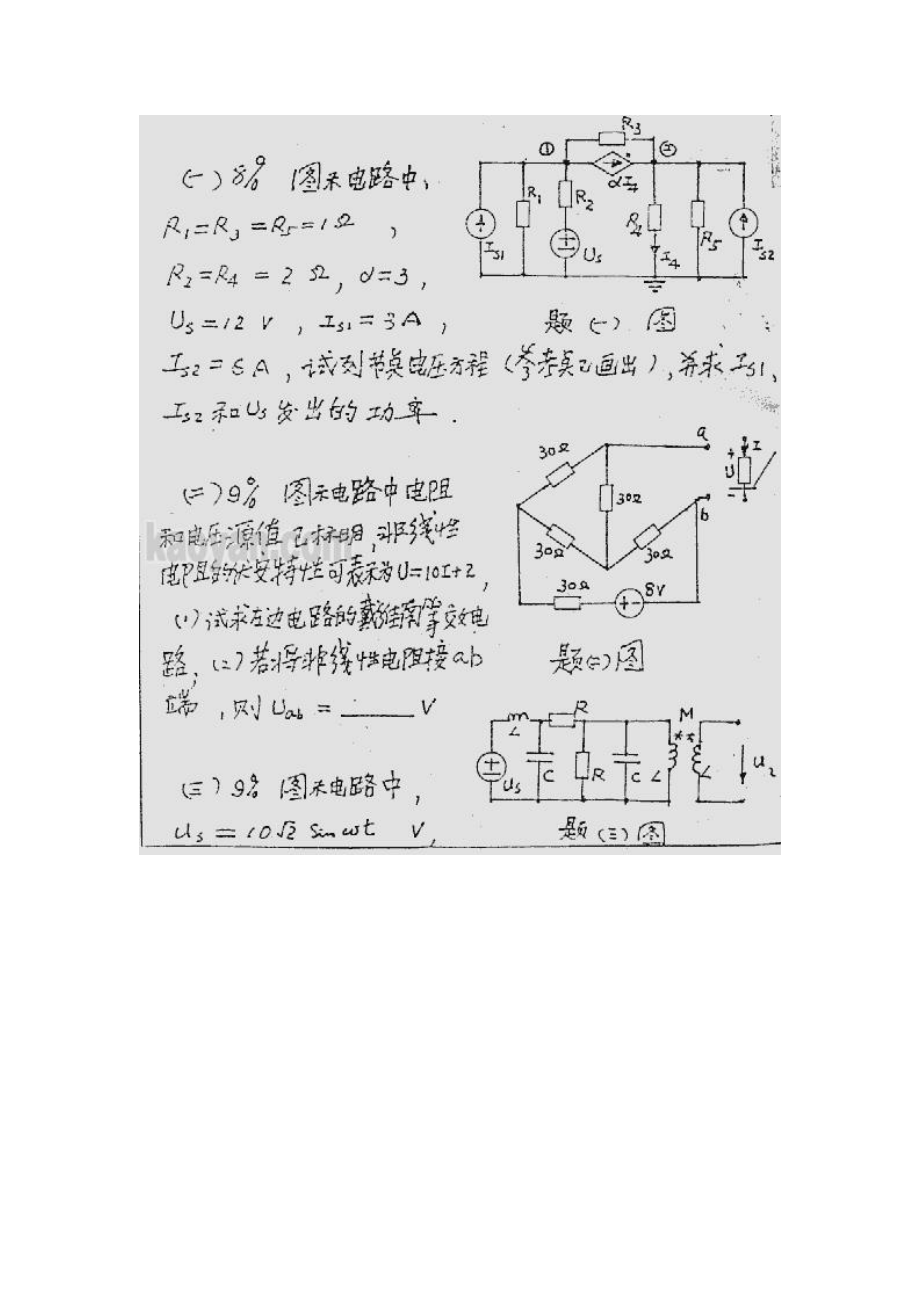 (一) 8% 图示电路中,
R₁=R₃=R₅=1Ω ,
R₂=R₄ = 2 Ω, α=3,
Us=12 V , Is1=3A ,
Is2=6A , 试列节点电压方程 (参考点已画出), 并求 Is1,
Is2 和 Us 发出的功率.
R₃
① ②
αI₄
R₁ R₂ R₄ R₅
Is1 Us I₄ Is2
题 (一) 图
(二) 9% 图示电路中电阻
和电压源值已标明, 非线性
电阻的伏安特性可表示为 U=10I+2,
(1) 试求左边电路的戴维南等效电
路, (2) 若将非线性电阻接 ab
端 , 则 Uab = ______ V
kaoyan.com
a
30Ω
30Ω
U I
+ -
b
30Ω 30Ω
30Ω 8V
+ -
题(二)图
(三) 9% 图示电路中,
us = 10√2 Sin ωt V,
R M
L * *
us C R C L L u₂
题 (三) 图